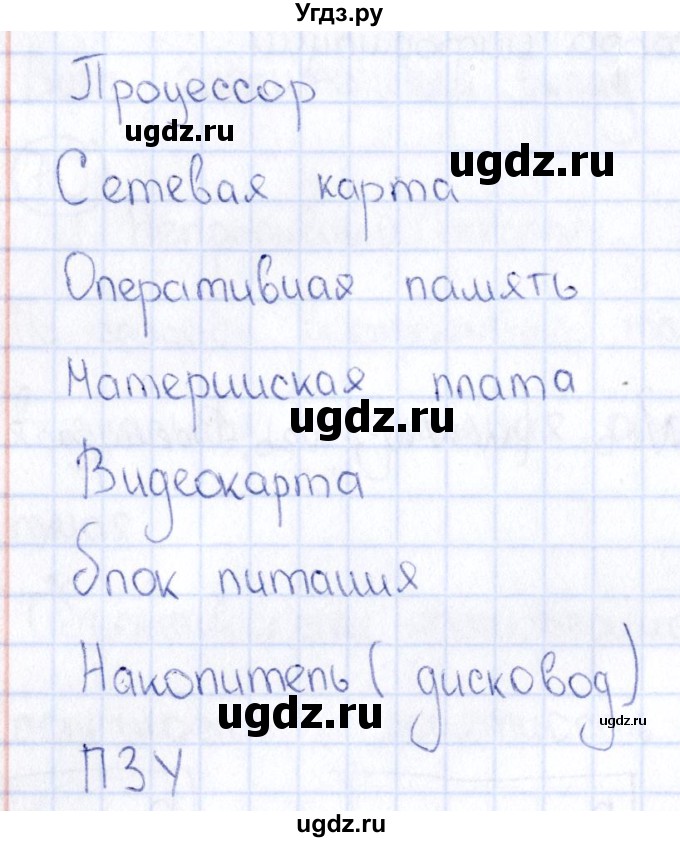 Угдз.ру
Процессор
ugdz.ru
ugdz.ru
Сетевая карта
Оперативная память
Материнская плата
ugdz.ru
Видеокарта
блок питания
Накопитель (дисковод)
ugdz.ru
ugdz.ru
ПЗУ
ugdz.ru